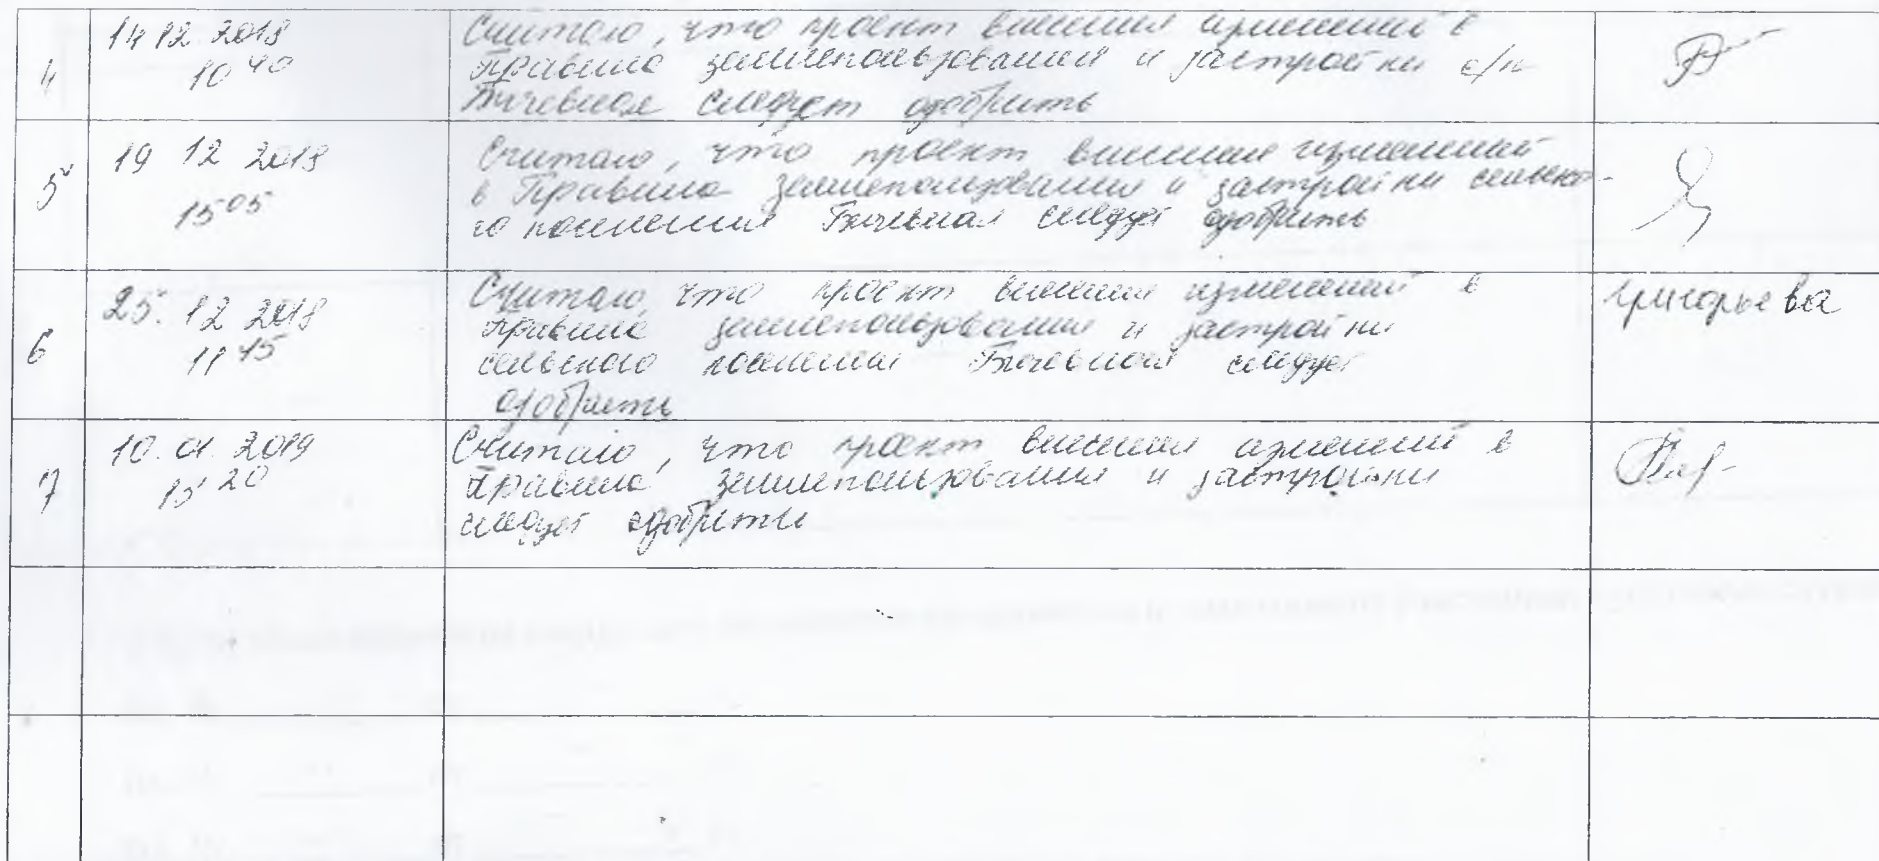 4 14 12 2018 Считаю, что проект внесения изменений в
10 40 Правила землепользования и застройки с/п
Бичевная следует одобрить
5 19 12 2018 Считаю, что проект внесения изменений
15 05 в Правила землепользования и застройки сельско-
го поселения Бичевная следует одобрить
6 25. 12 2018 Считаю, что проект внесения изменений в Григорьева
11 45 Правила землепользования и застройки
сельского поселения Бичевной следует
одобрить
7 10. 01. 2019 Считаю, что проект внесения изменений в
15 20 Правила землепользования и застройки
следует одобрить